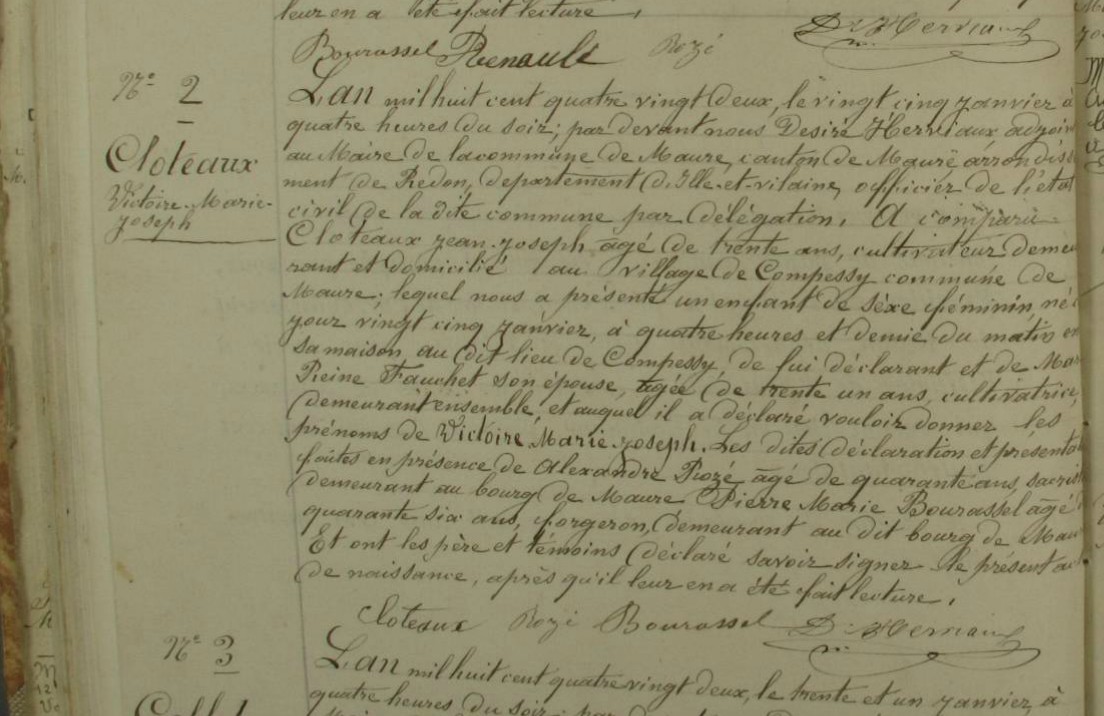 leur en a été fait lecture.
Bourassel Renault Rozé D. Herviaux
N° 2
Cloteaux
Victoire-Marie-
Joseph
L'an mil huit cent quatre vingt deux, le vingt cinq janvier à
quatre heures du soir; par devant nous Désiré Herviaux adjoin
au Maire de la commune de Maure, canton de Maure arrondisse
ment de Redon, département d'Ille-et-vilaine, officier de l'état
civil de la dite commune par délégation. A comparu
Cloteaux jean-joseph âgé de trente ans, cultivateur demeu
rant et domicilié au village de Compessy commune de
Maure; lequel nous a présenté un enfant de sèxe féminin, né c
jour vingt cinq janvier, à quatre heures et demie du matin en
sa maison, au dit lieu de Compessy, de lui déclarant et de Mar
Reine Fauchet son épouse, âgée de trente un ans, cultivatrice,
demeurant ensemble, et auquel il a déclaré vouloir donner les
prénoms de Victoire Marie-Joseph. Les dites déclaration et présentat
faites en présence de Alexandre Rozé âgé de quarante ans, sacrist
demeurant au bourg de Maure Pierre Marie Bourassel âgé d
quarante six ans, forgeron, demeurant au dit bourg de Maur
Et ont les père et témoins déclaré savoir signer le présent ac
de naissance, après qu'il leur en a été fait lecture.
Cloteaux Rozé Bourassel D. Herviaux
N° 3
L'an mil huit cent quatre vingt deux, le trente et un janvier, à
quatre heures du soir; par